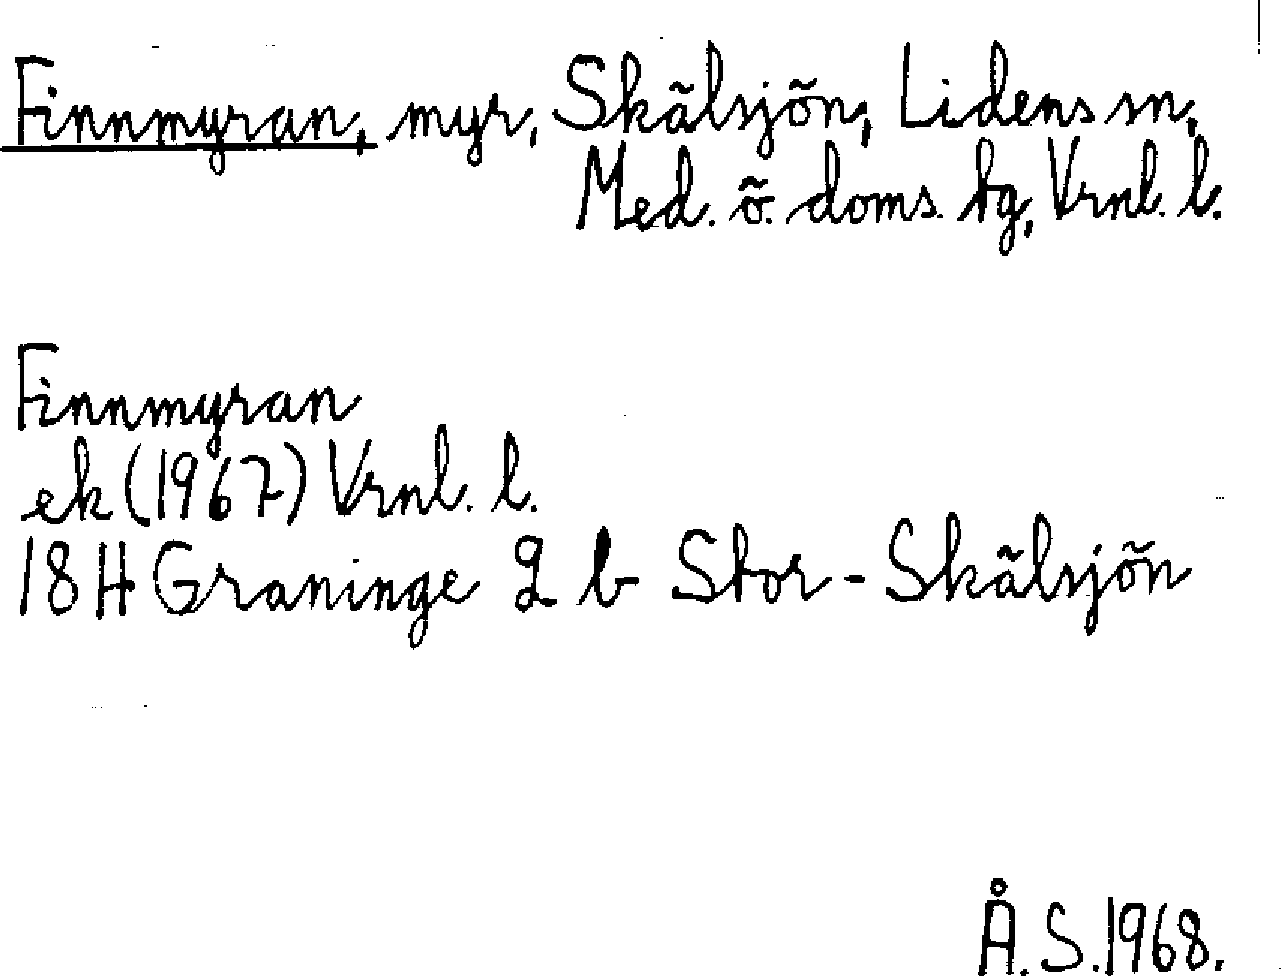 Finnmyran, myr, Skälsjön, Lidens sn,
Med. ö. doms. tg, Vrnl. l.
Finnmyran
ek (1967) Vrnl. l.
18 H Graninge 2 b Stor-Skälsjön
Å. S. 1968.